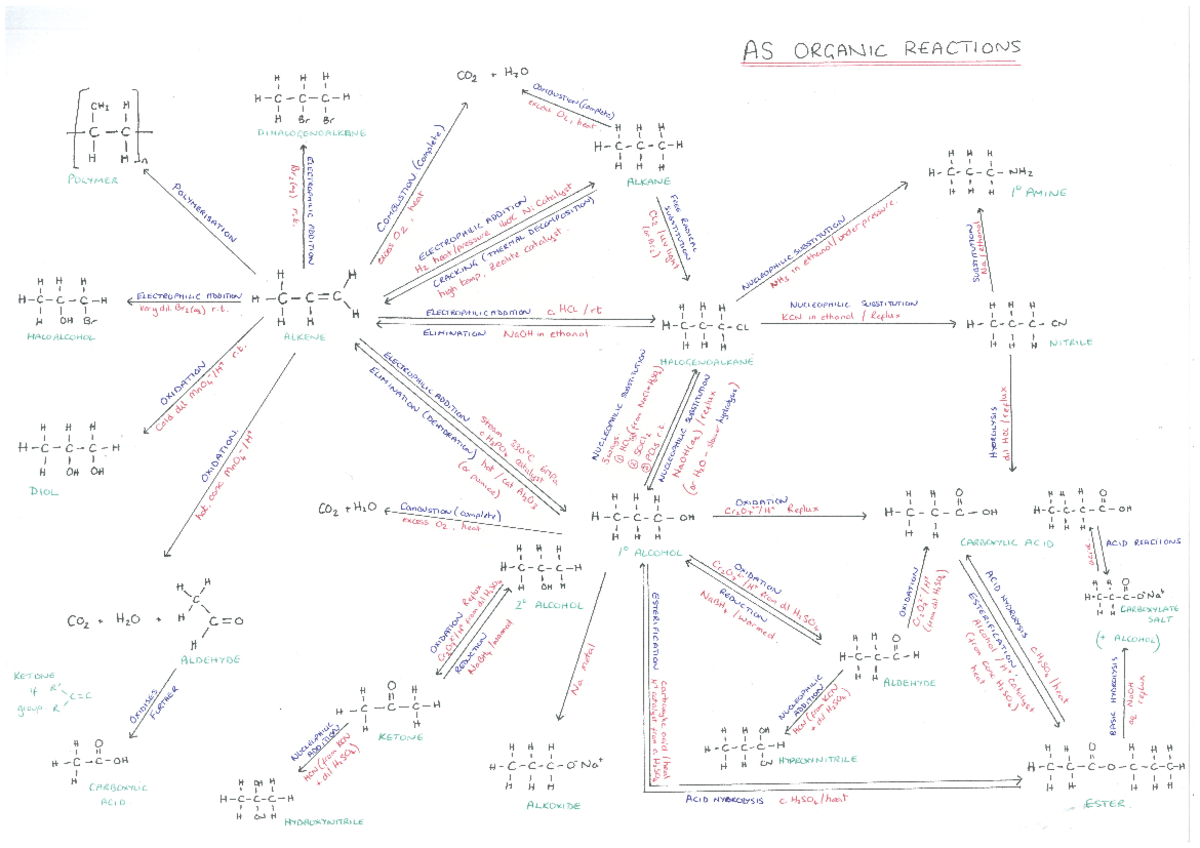 AS ORGANIC REACTIONS
CO2 + H2O
COMBUSTION (complete)
excess O2, heat.
ALKANE
DIHALOGENOALKENE
ELECTROPHILIC ADDITION
Br2(aq) r.t.
POLYMER
POLYMERISATION
COMBUSTION (complete)
excess O2, heat
ELECTROPHILIC ADDITION
H2 heat/pressure 140°C Ni Catalyst
CRACKING (THERMAL DECOMPOSITION)
high temp, Zeolite catalyst.
FREE RADICAL
SUBSTITUTION
Cl2 / UV light
(or Br2)
NH2
1° AMINE
NUCLEOPHILIC SUBSTITUTION
NH3 in ethanol/under pressure.
SUBSTITUTION
Na/ethanol
ELECTROPHILIC ADDITION
Very dil Br2(aq) r.t.
HALOALCOHOL
ALKENE
ELECTROPHILIC ADDITION c. HCL / rt
ELIMINATION NaOH in ethanol
HALOGENOALKANE
NUCLEOPHILIC SUBSTITUTION
KCN in ethanol / Reflux
NITRILE
OXIDATION
Cold dil MnO4-/H+ r.t.
DIOL
OXIDATION
hot, conc MnO4-/H+
ELECTROPHILIC ADDITION
Steam 330°C 6MPa
c.H3PO4 catalyst
ELIMINATION (DEHYDRATION)
hot / cat Al2O3
(or pumice)
NUCLEOPHILIC SUBSTITUTION
3 ways:
① HCl(g) (from NaCl+H2SO4)
② SOCl2
③ PCl5 r.t.
NUCLEOPHILIC SUBSTITUTION
NaOH(aq) / reflux
(or H2O - slower hydrolysis)
HYDROLYSIS
dil HCl / reflux
CO2 + H2O
COMBUSTION (complete)
excess O2, heat
1° ALCOHOL
OXIDATION
Cr2O7 2-/H+ Reflux
CARBOXYLIC ACID
ACID REACTIONS
CARBOXYLATE
SALT
(+ ALCOHOL)
2° ALCOHOL
OXIDATION Reflux
Cr2O7 2-/H+ from dil H2SO4
REDUCTION
NaBH4/warmed
OXIDATION
Cr2O7 2-/H+ from dil H2SO4
REDUCTION
NaBH4 / warmed.
OXIDATION
Cr2O7 2-/H+
(from dil H2SO4)
ALDEHYDE
ACID HYDROLYSIS
c H2SO4 / heat
ESTERIFICATION
Alcohol / H+ catalyst
(from conc H2SO4)
heat.
BASIC HYDROLYSIS
aq NaOH
reflux
CO2 + H2O +
ALDEHYDE
KETONE
if R'
group. R
C=C
OXIDISES
FURTHER
CARBOXYLIC
ACID
NUCLEOPHILIC
ADDITION
HCN (from KCN
+ dil H2SO4)
HYDROXYNITRILE
KETONE
Na metal
ALKOXIDE
ESTERIFICATION
Carboxylic acid / heat
H+ catalyst from c. H2SO4
NUCLEOPHILIC
ADDITION
HCN (from KCN
+ dil H2SO4)
HYDROXYNITRILE
ACID HYDROLYSIS c. H2SO4/heat
ESTER